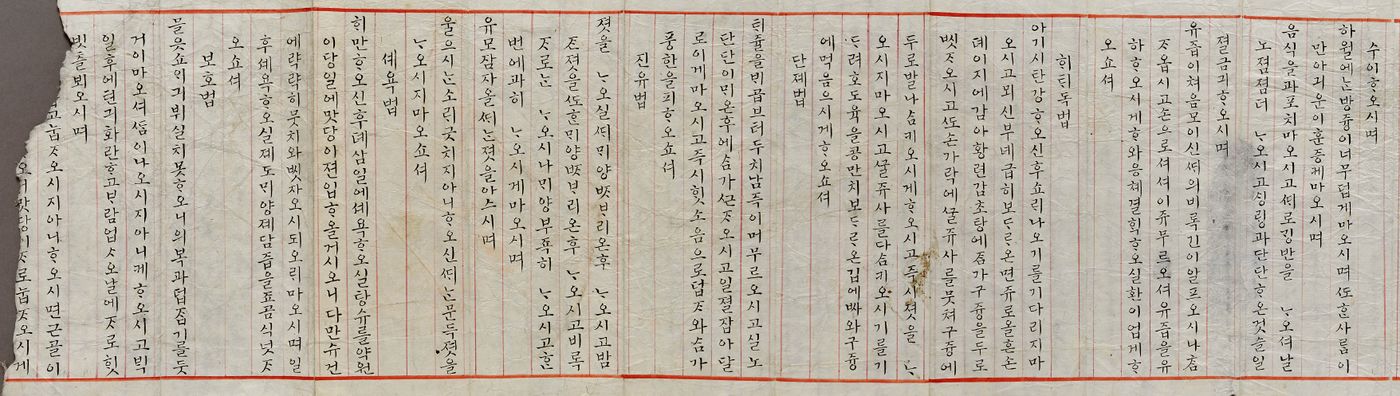 수이ᄒᆞ오시며
하월에ᄂᆞᆫ방즁이너무덥게마오시며ᄯᅩᄒᆞᆫ사ᄅᆞᆷ이
만아긔운이훈증케마오시며
음식을과포치마오시고셰로ᄀᆡᆼ반을 ᄂᆞ오셔날
노졈졈더 ᄂᆞ오시고ᄉᆡᆼᄅᆡᆼ과단단ᄒᆞ온것슬일
졀금긔ᄒᆞ오시며
유즙이쳐음모이신ᄶᅦ의비록긴이알프오시나ᄎᆞᆷ
ᄌᆞ옵시고손으로셔셔이쥬무르오셔유즙을유
하ᄒᆞ오시게ᄒᆞ와응쳬결ᄒᆡᆨᄒᆞ오실환이업게ᄒᆞ
오쇼셔
ᄒᆡᄐᆡ독법
아기시탄강ᄒᆞ오신후쇼ᄅᆡ나오기를기다리지마
오시고뫼신부녜급히보드ᄅᆞ온면쥬로올흔손
뎨이지에감아황련감초탕에ᄌᆞᆷ가구즁을두로
벳ᄌᆞ오시고ᄯᅩ손가락에ᄭᅮᆯ쥬사를뭇쳐구즁에
두로발나ᄉᆞᆷ키오시게ᄒᆞ오시고즉시졋을 ᄂᆞ
오시지마오시고ᄭᅮᆯ쥬사를다ᄉᆞᆷ키오시기를기
ᄃᆞ려호도육을콩만치보드ᄅᆞ온깁에ᄡᅡ와구즁
에먹음으시게ᄒᆞ오쇼셔
단졔법
ᄐᆡ쥴을빈곱브터두치남즉이머무르오시고실노
단단이ᄆᆡ온후에ᄉᆞᆷ가ᄭᅳᆫᄌᆞ오시고일졀잡아달
로이게마오시고즉시힛소음으로덥ᄌᆞ와ᄉᆞᆷ가
풍한을피ᄒᆞ오쇼셔
진유법
졋을 ᄂᆞ오실ᄶᅦᄆᆡ양ᄧᅡᄇᆞ리온후 ᄂᆞ오시고밤
ᄌᆞᆫ졋을ᄯᅩᄒᆞᆫᄆᆡ양ᄧᅡᄇᆞ리온후 ᄂᆞ오시고비록
ᄌᆞ로ᄂᆞᆫ ᄂᆞ오시나ᄆᆡ양부죡히 ᄂᆞ오시고ᄒᆞᆫ
번에과히 ᄂᆞ오시게마오시며
유모잠자올ᄶᅦᄂᆞᆫ졋을아스시며
울으시ᄂᆞᆫ소ᄅᆡ긋치지아니ᄒᆞ오신ᄶᅦᄂᆞᆫ문득졋을
ᄂᆞ오시지마오쇼셔
셰욕법
히만ᄒᆞ오신후뎨삼일에셰욕ᄒᆞ오실탕슈를약원
이당일에맛당이젼입ᄒᆞ올거시오니다만슈건
에략략히뭇치와벳자오시되오ᄅᆡ마오시며일
후셰욕ᄒᆞ오실졔도ᄆᆡ양졔담즙을죠곰식넛ᄌᆞ
오쇼셔
보호법
믈읏쇼의긔뷔실치못ᄒᆞ오니의복과덥ᄌᆞᆸ기를둣
거이마오셔ᄯᆞᆷ이나오시지아니케ᄒᆞ오시고ᄇᆡᆨ
일후에텬긔화란ᄒᆞ고ᄇᆞ람업ᄉᆞ오날에ᄌᆞ로힛
빗츨뵈오시며
눕ᄌᆞ오시지아니ᄒᆞ오시면근골이
맛당이ᄌᆞ로눕ᄌᆞ오시게